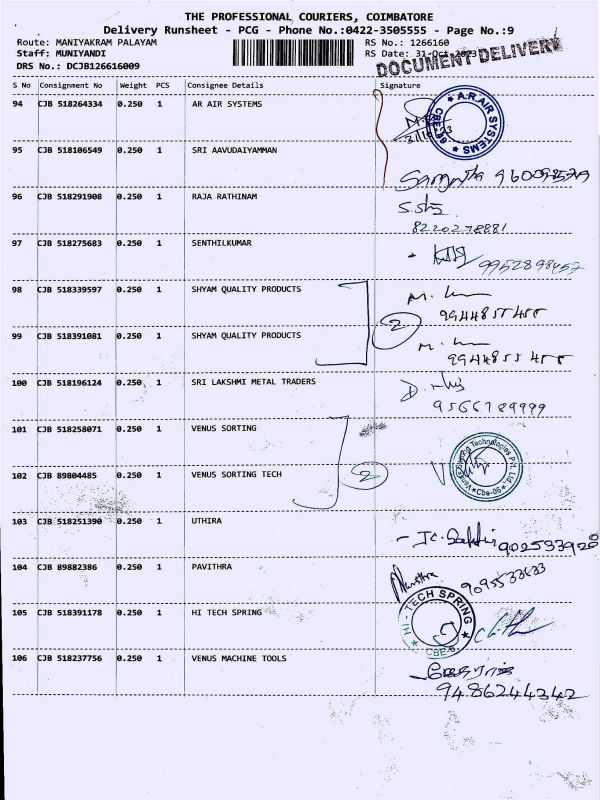 THE PROFESSIONAL COURIERS, COIMBATORE
Delivery Runsheet - PCG - Phone No.:0422-3505555 - Page No.:9
Route: MANIYAKRAM PALAYAM RS No.: 1266160
Staff: MUNIYANDI RS Date: 31-Oct-2023
DOCUMENT DELIVERY
DRS No.: DCJB126616009
S No Consignment No Weight PCS Consignee Details Signature
94 CJB 518264334 0.250 1 AR AIR SYSTEMS
A.R.AIR SYSTEMS
95 CJB 518106549 0.250 1 SRI AAVUDAIYAMMAN
96 CJB 518291908 0.250 1 RAJA RATHINAM
8220278881
97 CJB 518275683 0.250 1 SENTHILKUMAR
98 CJB 518339597 0.250 1 SHYAM QUALITY PRODUCTS
2
99 CJB 518391081 0.250 1 SHYAM QUALITY PRODUCTS
100 CJB 518196124 0.250 1 SRI LAKSHMI METAL TRADERS
101 CJB 518258071 0.250 1 VENUS SORTING
102 CJB 89804485 0.250 1 VENUS SORTING TECH 2
Venus Sorting Technologies Pvt. Ltd. Cbe-06
103 CJB 518251390 0.250 1 UTHIRA
104 CJB 89882386 0.250 1 PAVITHRA
Pavithra
105 CJB 518391178 0.250 1 HI TECH SPRING
HI - TECH SPRING CBE-6
106 CJB 518237756 0.250 1 VENUS MACHINE TOOLS
9486244342